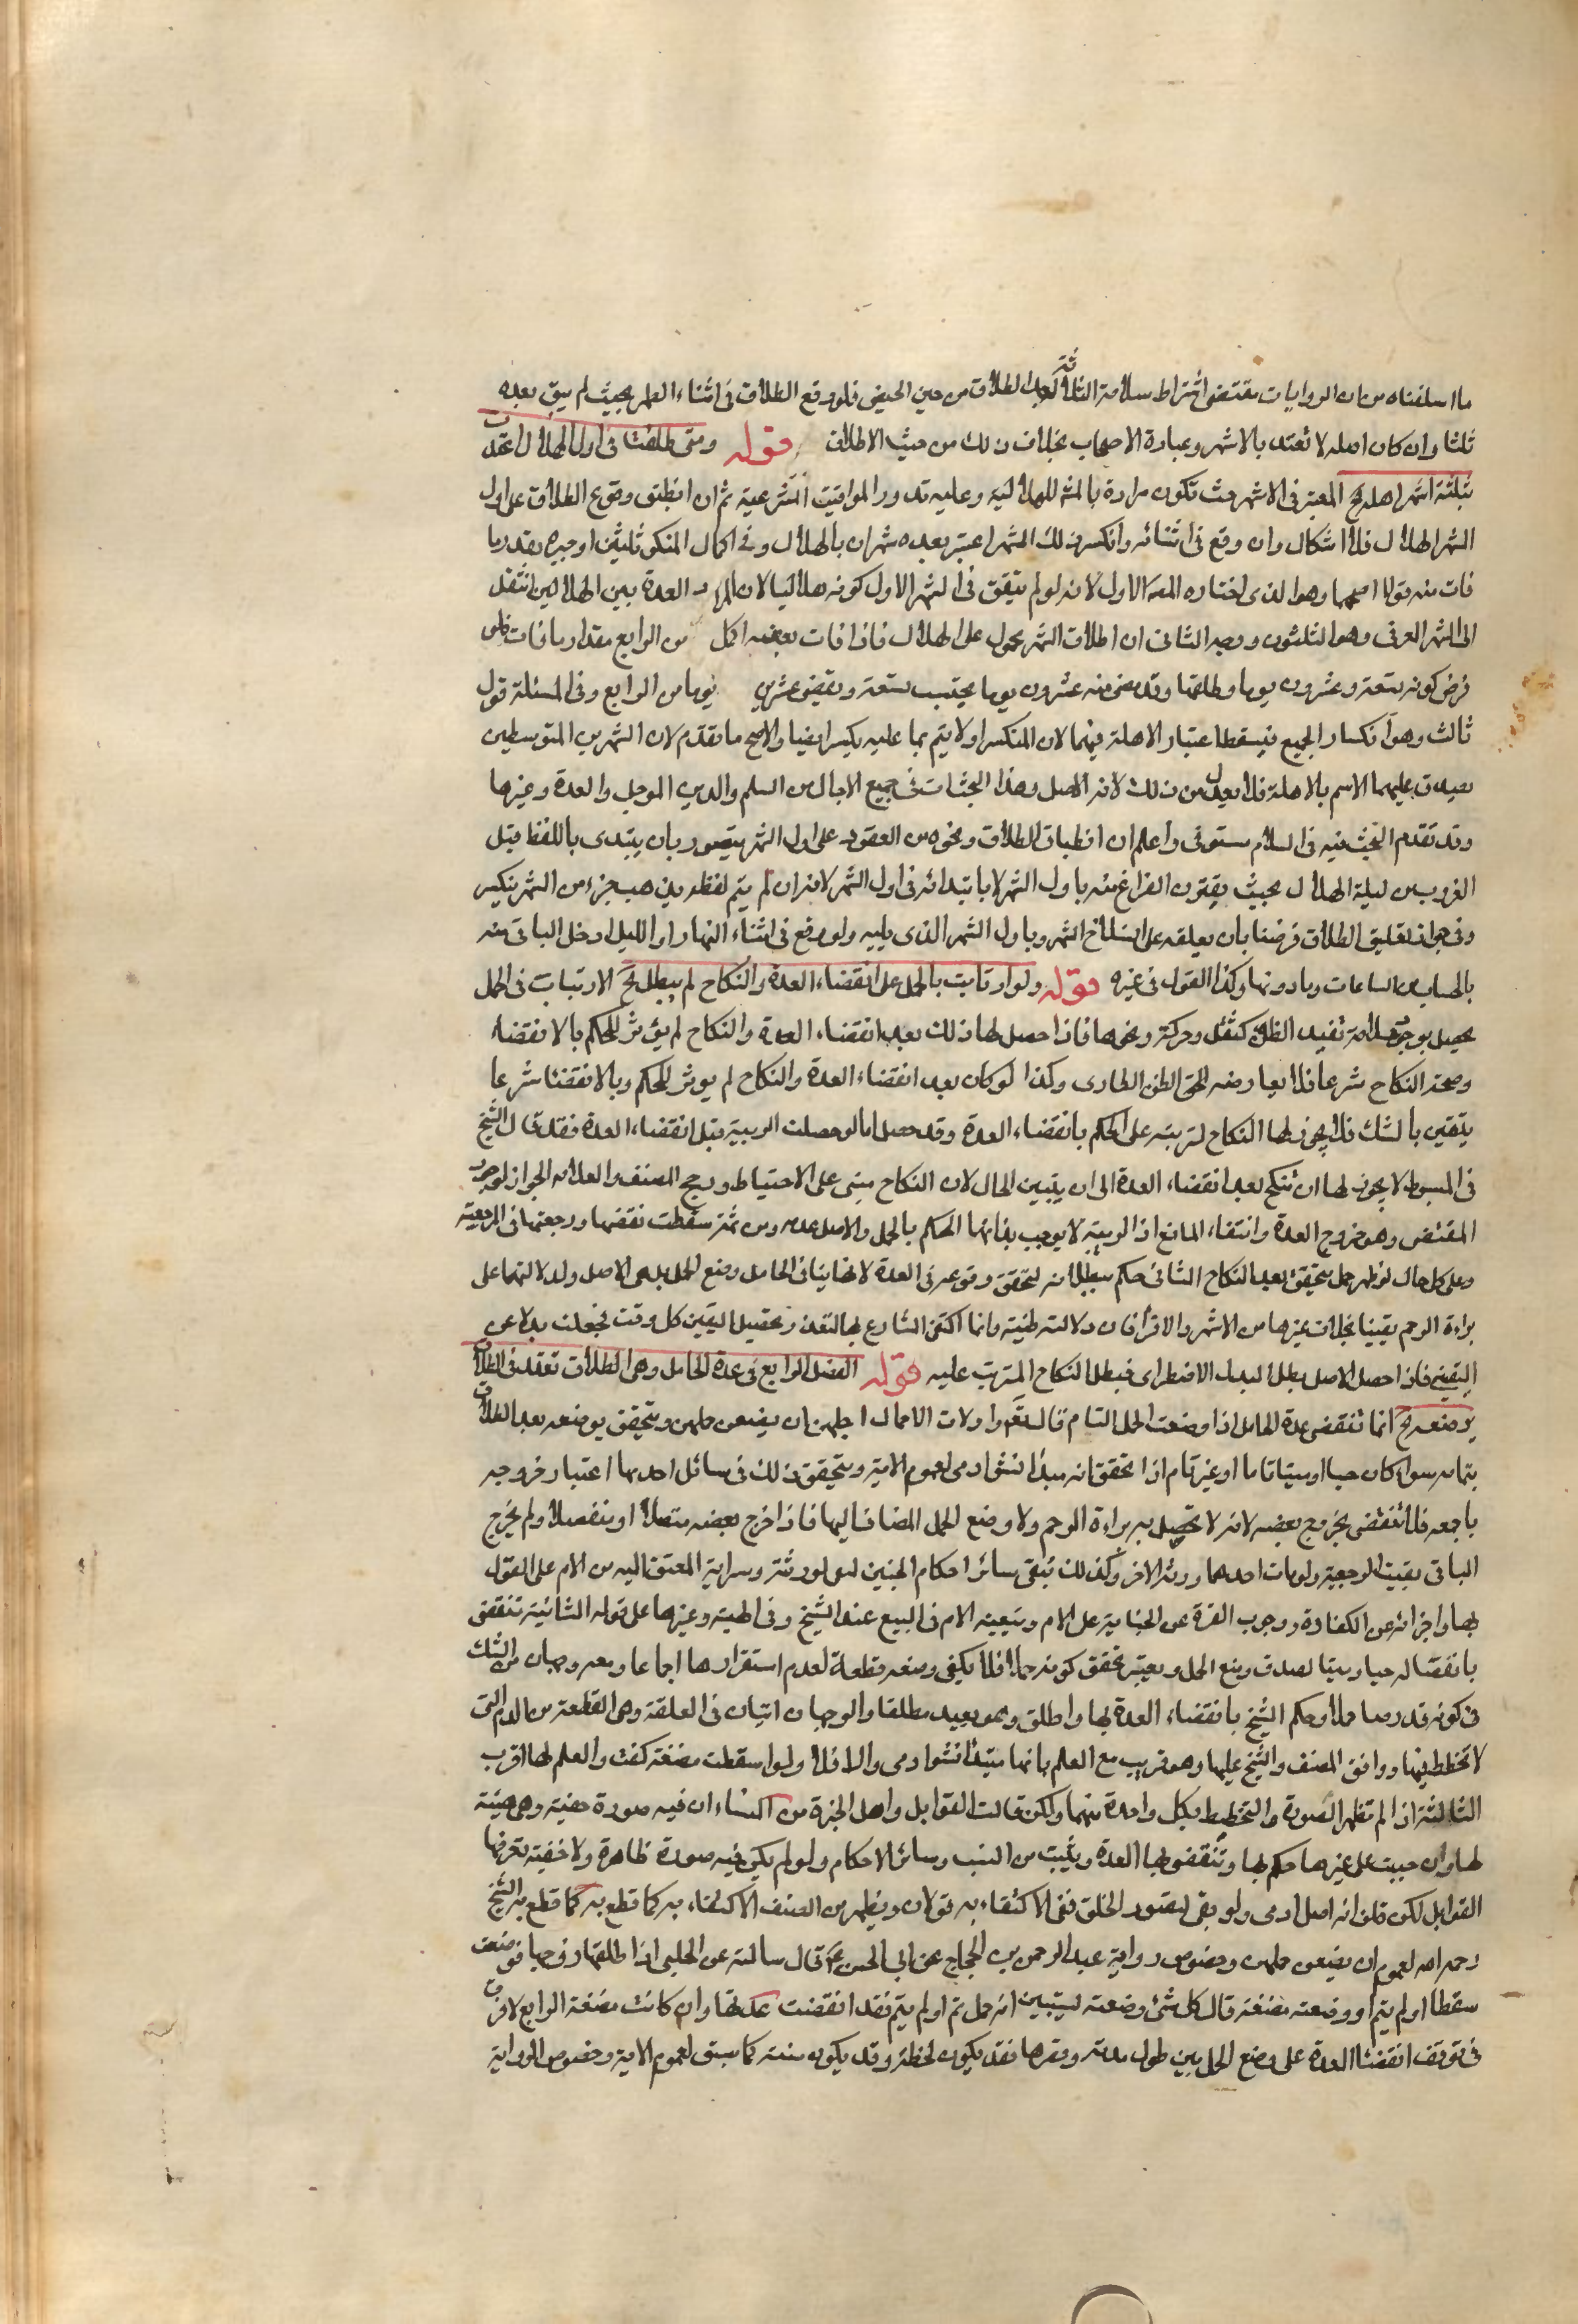 ما اسلفناه من ان الروايات تقتضى اشتراط سلامة الثلاثة بعد الطلاق من حين الحيض فلو وقع الطلاق فى اثناء الطهر بحيث لم يبق بعده
ثلثا وان كان اصله لا تعتد بالاشهر وعبارة الاصحاب بخلاف ذلك من حيث الاطلاق قوله ومتى طلقت فى اول الهلال اعتدت
بثلثة اشهر اهلة الخ المعتبر فى الاشهر حيث تكون مرادة بالشهر الهلالية وعليه تدور المواقيت الشرعية ثم ان انطبق وقوع الطلاق على اول
الشهر الهلال فلا اشكال وان وقع فى اثنائه وانكسر ذلك الشهر اعتبر بعده شهران بالهلال وفى اكمال المنكسر ثلثين او جبره بقدر ما
فات منه قولا اصحهما وهو الذى اختاره المص الاول لانه لو لم يتفق فى الشهر الاول كونه هلاليا لان المراد العدة بين الهلالين انتقل
الى الشهر العرفى وهو الثلثون ووجه الثانى ان اطلاق الشهر محمول على الهلال فاذا فات بعضه اكمل من الرابع مقدار ما فات فلو
فرض كونه تسعة وعشرون يوما وطلقها وقد مضى منه عشرون يوما يحتسب بتسعة وتقضى عشرين يوما من الرابع وفى المسئلة قول
ثالث وهو انكسار الجميع فيسقط اعتبار الاهلة فيهما لان المنكسر اولا يتم بما عليه بكسر ايضا والاصح ما تقدم لان الشهرين المتوسطين
يصدق عليهما الاسم بالاهلة فلا يعدل من ذلك لانه الاصل وهذا البحث ات فى جميع الاجال من السلم والدين الموجل والعدة وغيرها
وقد تقدم البحث فيه فى السلام مستوفى واعلم ان انطباق الطلاق ونحوه من العقود على اول الشهر يتصور بان يبتدى باللفظ قبل
الغروب من ليلة الهلال بحيث يقترن الفراغ منه باول الشهر لا بابتدائه فى اول الشهر لانه ان لم يتم لفظه يذهب جزء من الشهر ينكسر
وفى جواز تعليق الطلاق فرضنا بان يعلقه على انسلاخ الشهر وباول الشهر الذى يليه ولو وقع فى اثناء النهار او الليل ادخل الباقى منه
بالحساب من الساعات وما دونها وكذا القول فى غيره قوله ولو ارتابت بالحمل على انقضاء العدة والنكاح لم يبطل الخ الارتياب فى الحمل
يحصل بوجود علامة تفيد الظن كثقل وحركة ونحوها فاذا حصل لها ذلك بعد انقضاء العدة والنكاح لم يؤثر للحكم بالانقضاء
وصحة النكاح شرعا فلا يعارضه الظن الطارى وكذا لو كان بعد انقضاء العدة والنكاح لم يوثر للحكم وبالانقضاء شرعا
يتقين بالشك فلا يجوز لها النكاح لترتبه على الحكم بانقضاء العدة وقد حصل اما لو حصلت الريبة قبل انقضاء العدة فقد قال الشيخ
فى المبسوط لا يجوز لها ان تنكح بعد انقضاء العدة الى ان يتبين الحال لان النكاح مبنى على الاحتياط ورجح المصنف والعلامه الجواز لوجود
المقتضى وهو خروج العدة وانتفاء المانع اذ الريبة لا يوجب بذاتها الحكم بالحمل والاصل عدمه ومن ثمة سقطت نفقتها ورجعتها فى الرجعية
وعلى كل حال لو ظهر حمل يتحقق بعد النكاح الثانى حكم ببطلانه لتحقق وقوعه فى العدة لانها ينافى الحامل وضع الحمل بل هى الاصل ولدلالتها على
براءة الرحم يقينا بخلاف غيرها من الاشهر والاقراء فان دلالته ظنية وانما اكتفى الشارع بها لتعذر تحصيل اليقين كل وقت فجعلت بدلا عن
اليقين فاذا حصل الاصل بطل البدل الاضطرارى فيبطل النكاح المترتب عليه قوله الفصل الرابع فى عدة الحامل وهى الطلاق تعتد فى الطلاق
بوضعه الخ انما تنقضى عدة الحامل اذا وضعت الحمل التام قال تعم واولات الاحمال اجلهن ان يضعن حملهن ويتحقق بوضعه بعد الطلاق
بتمامه سواء كان حيا او ميتا تاما او غير تام اذا تحقق انه مبدأ نشو ادمى لعموم الاية ويتحقق ذلك فى مسائل احديها اعتبار خروجه
باجمعه فلا تنقضى بخروج بعضه لانه لا تحصل به براءة الرحم ولا وضع الحمل المضاف اليها فاذا خرج بعضه متصلا او منفصلا ولم يخرج
الباقى بقيت الرجعية ولو مات احدهما ورثه الاخر وكذلك تبقى سائر احكام الجنين لعى لورثته وسراية المعتق اليه من الام على القول
بها واجزائه عن الكفارة ووجوب الغرة عن الجناية على الام وتبعيته الام فى البيع عند الشيخ وفى الهبة وغيرها على قوله الثانية تنقضى
بانفصاله حيا وميتا لصدق وضع الحمل ويعتبر تحقق كونه حملا فلا يكفى وضعه قطعة لعدم استقرارها اجماعا ومعه وجهان من الشك
فى كونه قد رصا حملا وحكم الشيخ بانقضاء العدة بها واطلق وهو بعيد مطلقا والوجهان اتيان فى العلقة وهى القطعة من الدم التى
لا تخطط فيها ووافق المصنف والشيخ عليها وهو قريب مع العلم بانها مبتدأ نشو ادمى والا فلا ولو اسقطت مضغة كفت والعلم لها اقرب
الثالثة اذا لم تظهر الصورة والتخطيط بكل واحدة منهما ولكن قالت القوابل واهل الخبرة من النساء ان فيه صورة خفية وهى هيئة
لها وان خبيت على غيرها حكم بها وتنقضى بها العدة ويثبت من النسب وسائر الاحكام ولو لم يكن فيه صورة ظاهرة ولا خفية تعرفها
القوابل لكن قلن انه اصل ادمى ولو بقى لتصور الخلق ففى الاكتفاء به قولان ويظهر من المصنف الاكتفاء به كما قطع به كما قطع به الشيخ
رحمه الله لعموم ان يضعن حملهن وخصوص رواية عبد الرحمن بن الحجاج عن ابى الحسن ع قال سالته عن الحبلى اذا طلقها زوجها فوضعت
سقطا او لم يتم او وضعته مضغة قال كل شئ وضعته ليتبين انه حمل تم او لم يتم فقد انقضت عدتها وان كانت مضغة الرابع لا فرق
فى توقف انقضاء العدة على وضع الحمل بين طول مدته وقصرها فقد يكون لحظة وقد يكون سنة كما سبق لعموم الاية وخصوص الرواية